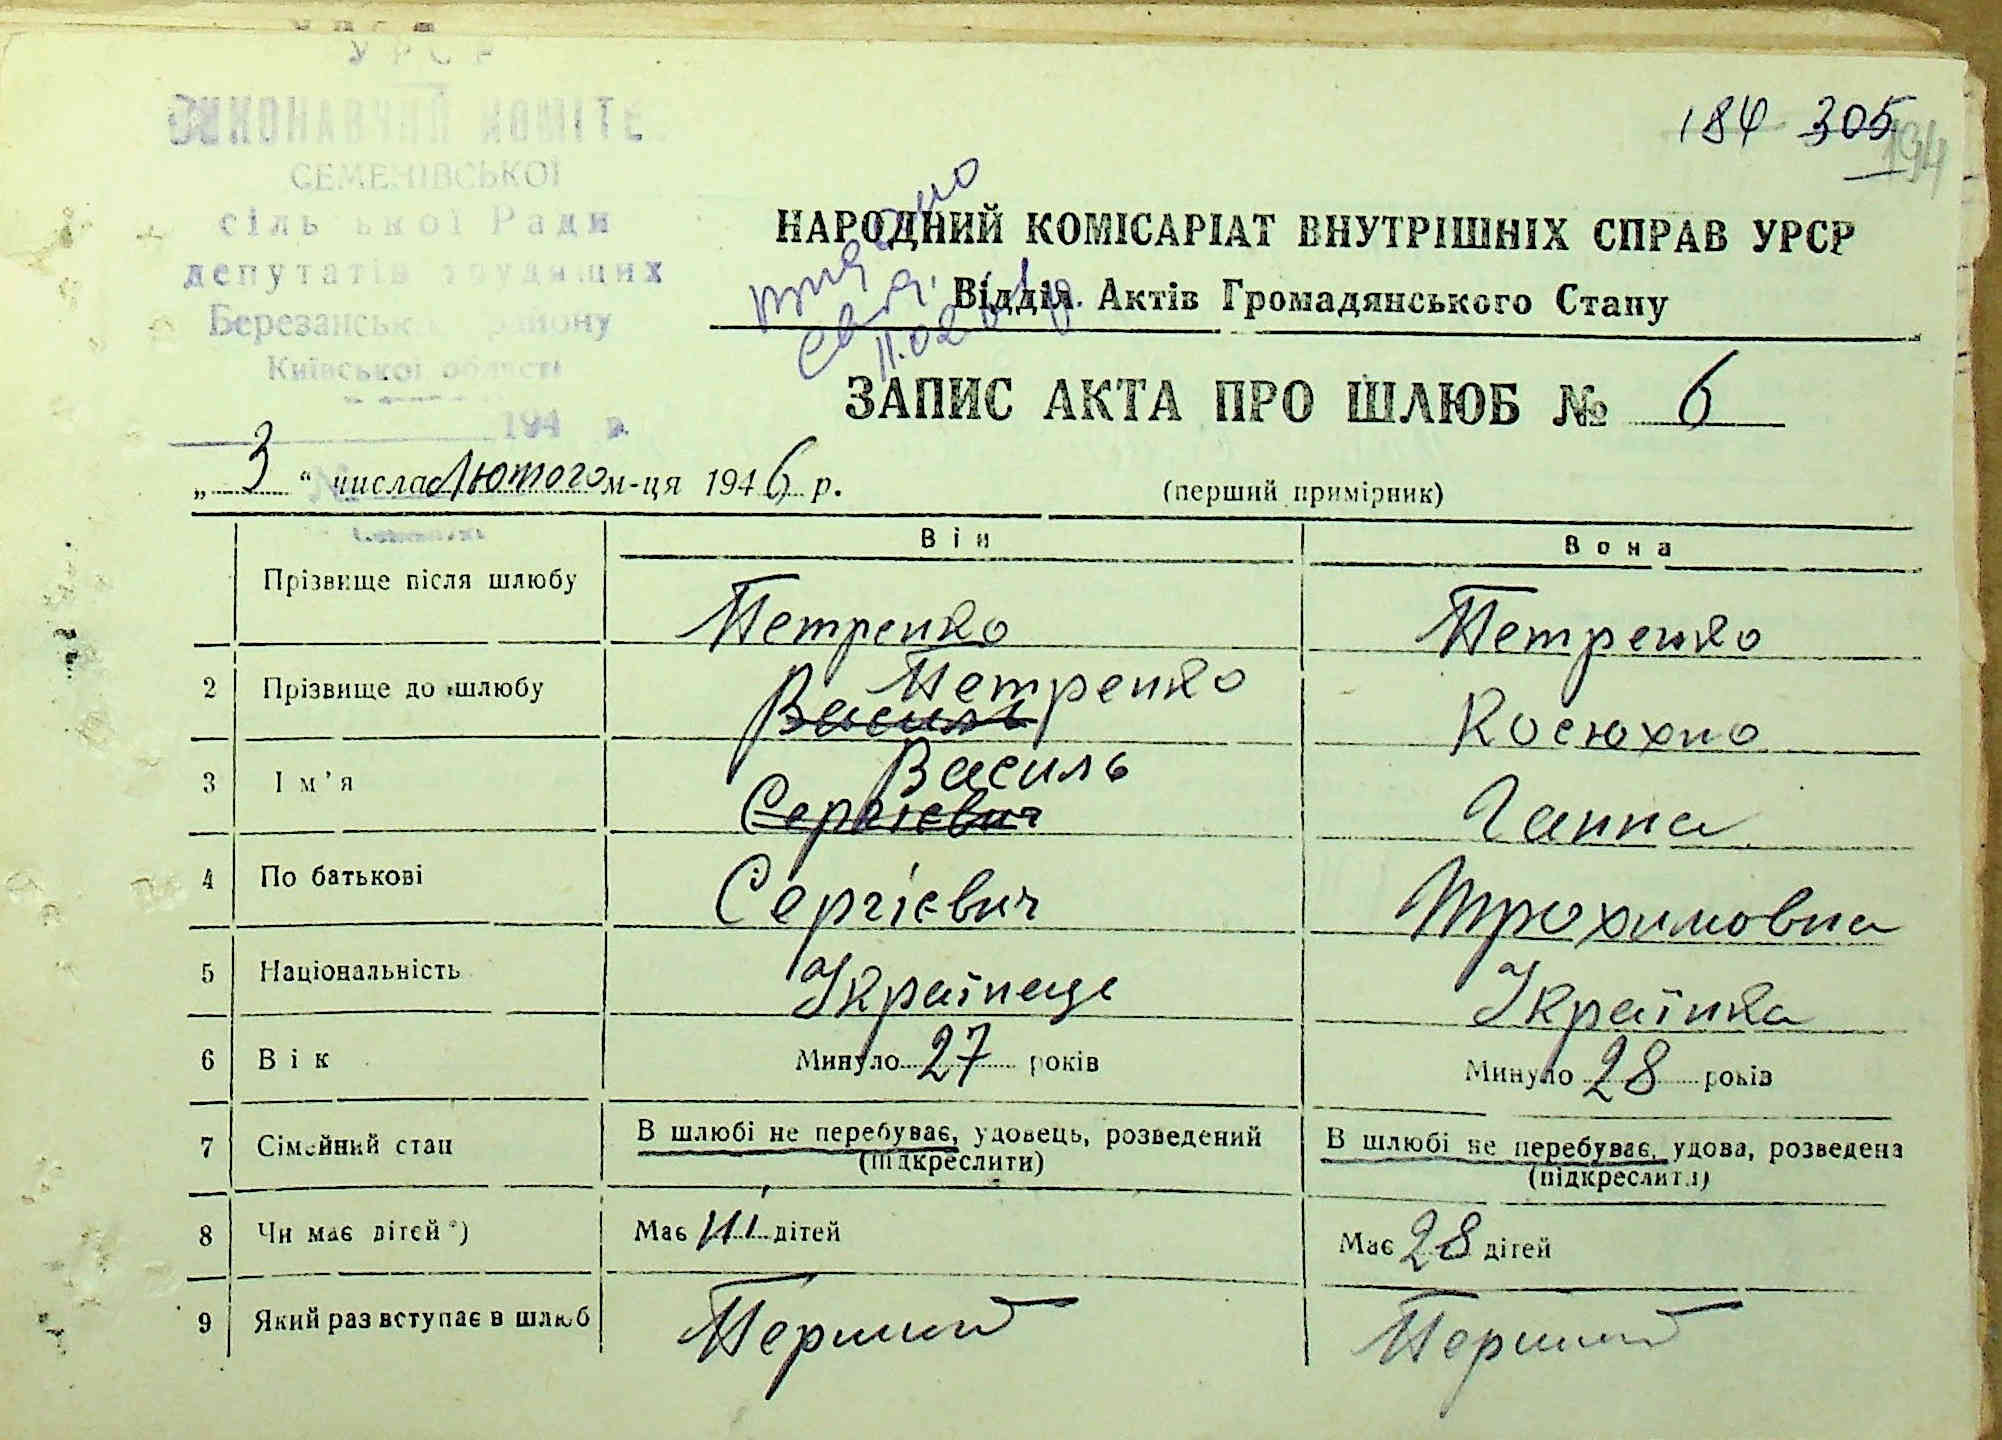 УРСР
ВИКОНАВЧИЙ КОМІТЕ
СЕМЕНІВСЬКОЇ
сільської Ради
депутатів трудящих
Березанського району
Київської області
194 р.
№
184 305
194
НАРОДНИЙ КОМІСАРІАТ ВНУТРІШНІХ СПРАВ УРСР
Відділ Актів Громадянського Стану
ЗАПИС АКТА ПРО ШЛЮБ № 6
„ 3 “ числа Лютого м-ця 1946 р.
(перший примірник)
Він Вона
Прізвище після шлюбу Петренко Петренко
2 Прізвище до шлюбу Петренко Косюхно
Василь
3 Ім'я Василь Ганна
Сергієвич
4 По батькові Сергієвич Трохимовна
5 Національність Українець Українка
6 Вік Минуло 27 років Минуло 28 років
7 Сімейний стан В шлюбі не перебуває, удовець, розведений В шлюбі не перебуває, удова, розведена
(підкреслити) (підкреслити)
8 Чи має дітей *) Має дітей Має 28 дітей
9 Який раз вступає в шлюб Перший Перший